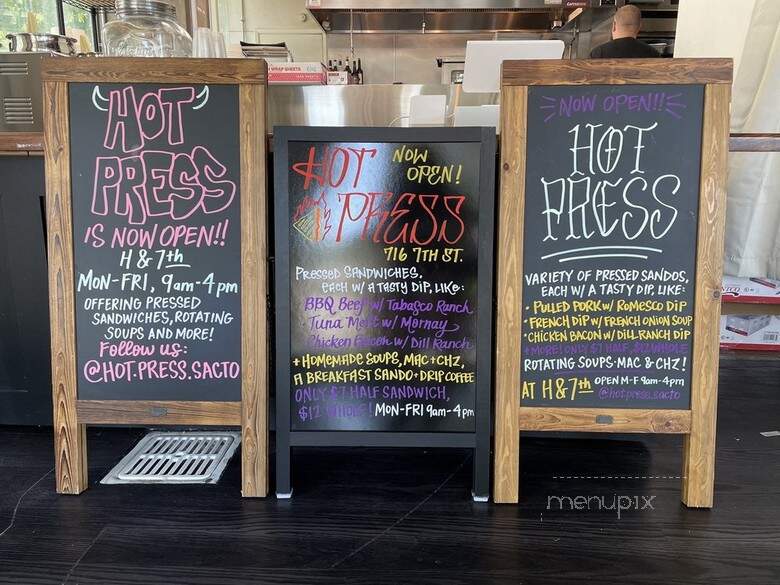 HOT
PRESS
IS NOW OPEN!!
H & 7th
MON-FRI, 9am-4pm
OFFERING PRESSED
SANDWICHES, ROTATING
SOUPS AND MORE!
Follow us:
@HOT.PRESS.SACTO
HOT NOW
OPEN!
PRESS
716 7TH ST.
PRESSED SANDWICHES,
EACH W/ A TASTY DIP, LIKE:
BBQ Beef w/ Tabasco Ranch
Tuna Melt w/ Mornay
Chicken Bacon w/ Dill Ranch
+ HOMEMADE SOUPS, MAC + CHZ,
A BREAKFAST SANDO + DRIP COFFEE
ONLY $7 HALF SANDWICH,
$12 WHOLE! MON-FRI 9am-4pm
NOW OPEN!!
HOT
PRESS
VARIETY OF PRESSED SANDOS,
EACH W/ A TASTY DIP, LIKE:
• PULLED PORK w/ ROMESCO DIP
• FRENCH DIP w/ FRENCH ONION SOUP
• CHICKEN BACON w/ DILL RANCH DIP
+ MORE! ONLY $7 HALF, $12 WHOLE
ROTATING SOUPS • MAC & CHZ!
AT H & 7th OPEN M-F 9am-4pm
@hotpress.sacto
menupix